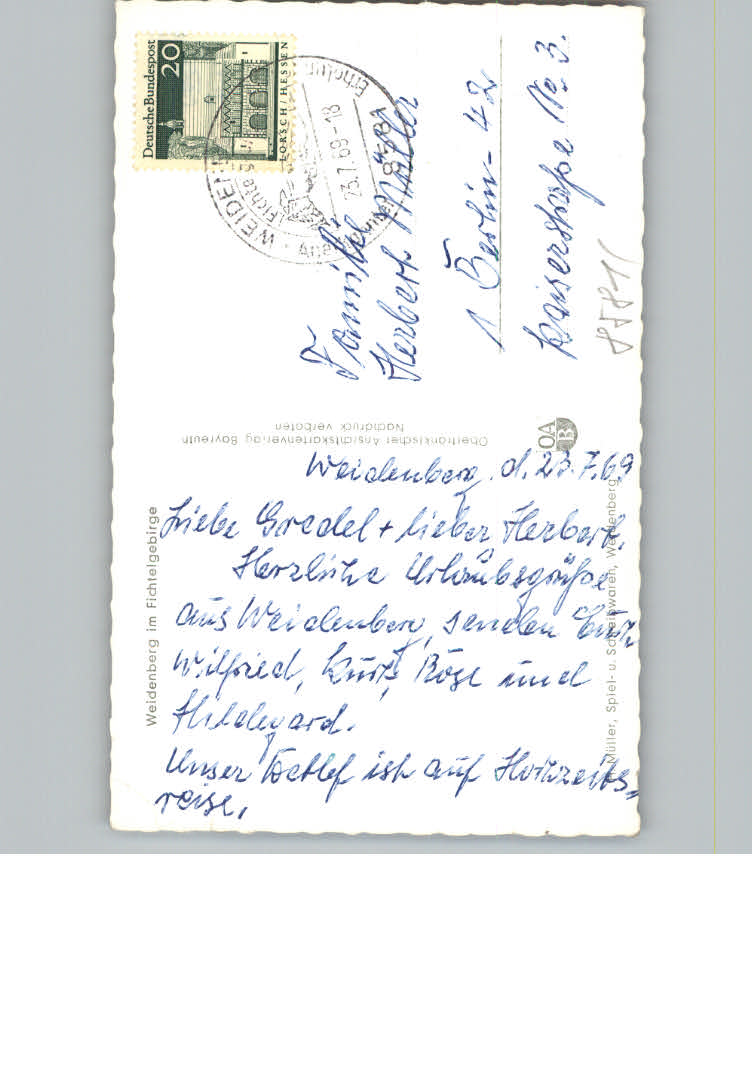 Deutsche Bundespost
20
LORSCH/HESSEN
23.7.69-18
8581
Familie
Herbert Müller
1 Berlin-42
Kaiserstraße No 3.
85811
Oberfränkischer Ansichtskartenverlag Bayreuth
Nachdruck verboten
OA
B
Weidenberg im Fichtelgebirge
Müller, Spiel- u. Schreibwaren, Weidenberg
Weidenberg, d. 23.7.69
Liebe Gredel + lieber Herbert.
Herzliche Urlaubsgrüße
aus Weidenberg, senden Euch
Wilfried, Kurt, Rose und
Hildegard.
Unser Detlef ist auf Hochzeits=
reise.